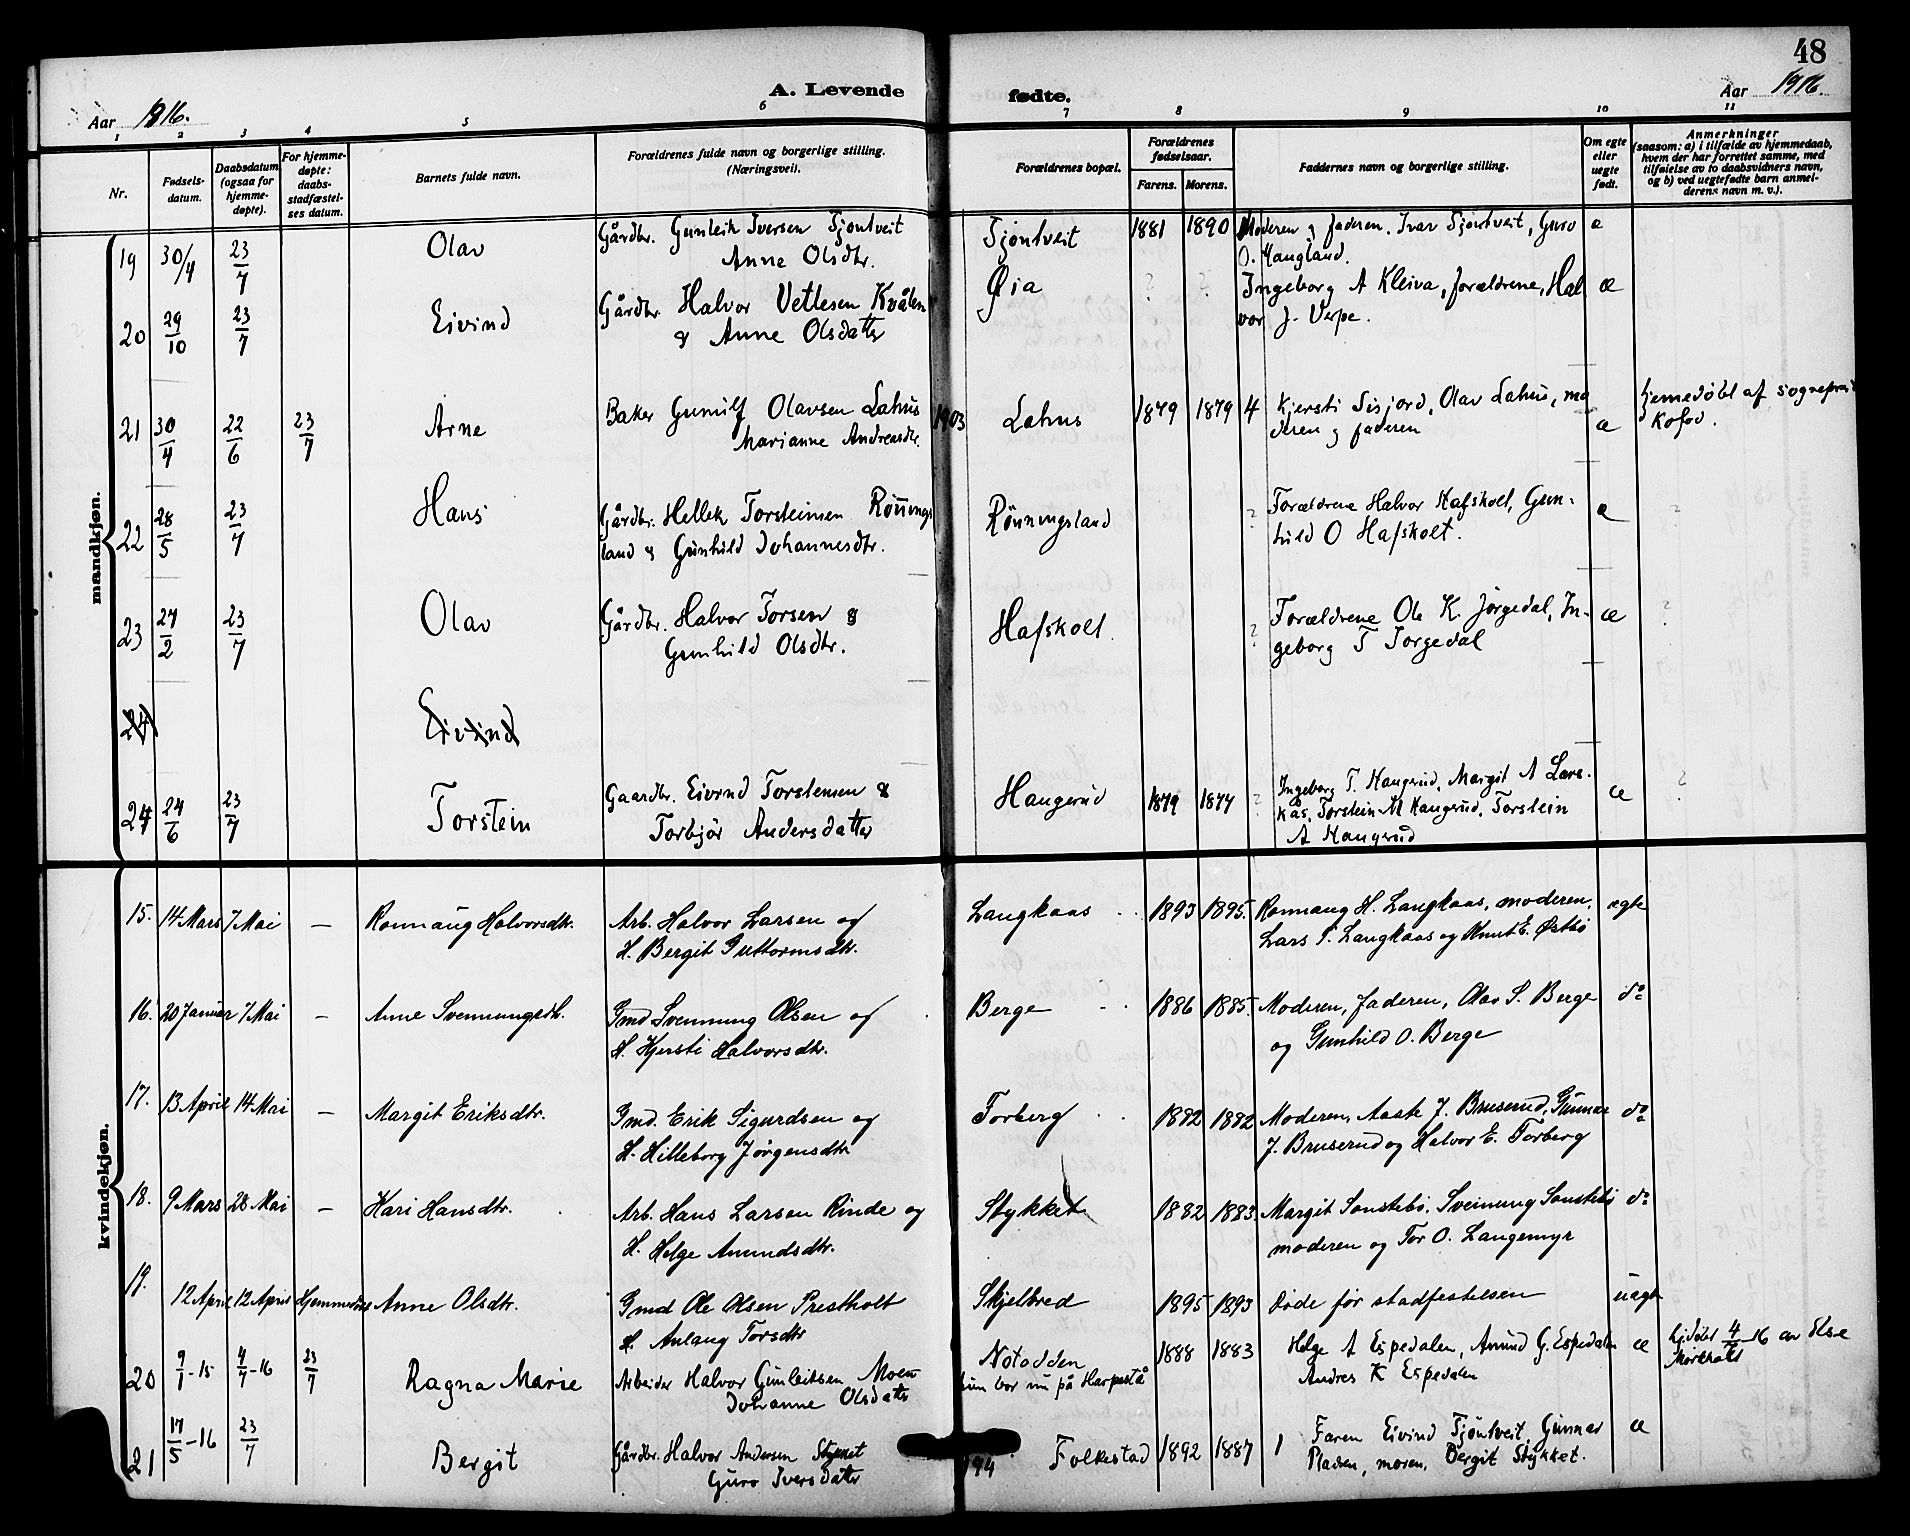 48
A. Levende fødte.
Aar 1916.
Aar 1916.
1 2 3 4 5 6 7 8 9 10 11
Nr.
Fødsels-
datum.
Daabsdatum
(ogsaa for
hjemme-
døpte).
For hjemme-
døpte:
daabs-
stadfæstel-
ses datum.
Barnets fulde navn.
Forældrenes fulde navn og borgerlige stilling.
(Næringsvei).
Forældrenes bopæl.
Forældrenes
fødselsaar.
Farens. Morens.
Faddernes navn og borgerlige stilling.
Om egte
eller
uegte
født.
Anmerkninger
(saasom: a) i tilfælde av hjemmedaab,
hvem der har forrettet samme, med
tilføielse av to daabsvidners navn,
og b) ved uegtefødte barn anmel-
derens navn m. v.).
mandkjøn.
19 30/4 23/7 Olav Gårdbr. Gunleik Iversen Tjöntveit Tjöntveit 1881 1890 Moderen g faderen. Ivar Tjöntveit, Guro æ
Anne Olsdtr. O. Haugland.
20 29/10 23/7 Eivind Gårdbr. Halvor Vetlesen Kvålen Øia ? ? Ingeborg A Kleiva, forældrene, Hal æ
& Anne Olsdatter vor J. Verpe.
21 30/4 22/6 23/7 Arne Baker Gunulf Olavsen Lahus 1903 Lahus 1879 1879 4 Kjersti Sisjord, Olav Lahus, mo æ hjemedöbt af sogneprest
Marianne Andreasdtr. deren g faderen Kofod.
22 28/5 23/7 Hans Gårdbr. Hellek Torsteinsen Rönnings Rönningsland ? Forældrene Halvor Hafskolt, Gun- æ ?
land & Gunhild Johannesdtr. hild O Hafskolt.
23 27/2 23/7 Olav Gårdbr. Halvor Torsen & Hafskolt. ? Forældrene Ole K. Jörgedal, In- æ ?
Gunhild Olsdtr. geborg T Jorgedal
24 Eivind
24 24/6 23/7 Torstein Gaardbr. Eivind Torstensen & Haugerud 1879 1877 ? Ingeborg T. Haugerud, Margit A Lars- æ ?
Torbjör Andersdatter kås, Torstein M Haugerud, Torstein
A Haugerud
kvindekjøn.
15. 14 Mars 7 Mai – Rannaug Halvorsdtr. Arb. Halvor Larsen og Langkaas 1893 1895. Rannaug H. Langkaas, moderen, egte
H. Bergit Guttormsdtr. Lars T. Langkaas og Knut E. Østbø
16. 20 Januar 7 Mai – Anne Svenningsdt. Gmd Svenning Olsen og Berge 1886 1885. Moderen, faderen, Olav S. Berge do
H. Kjersti Halvorsdtr. og Gunhild O. Berge
17. 13 April 14 Mai – Margit Eriksdtr. Gmd. Erik Sigurdsen og Forberg 1882 1882 Moderen, Aaste J. Bruserud, Gunnar do
H. Hilleborg Jørgensdtr J. Bruserud og Halvor E. Forberg
18. 9 Mars 28 Mai – Kari Hansdtr. Arb. Hans Larsen Rinde og Stykket 1882 1883. Margit Sønstebø, Sveinung Sønstebø do
H. Helge Amundsdtr. moderen og Tor O. Langemyr
19. 12 April 12 April Hjemmedøpt Anne Olsdtr. Gmd Ole Olsen Prestholt Skjelbred 1895 1893 Døde før stadfestelsen uægte
H. Anlaug Torsdtr
20 9/1-15 4/7-16 23/7 Ragna Marie Arbeider Halvor Gunleiksen Moen Notodden 1888 1883 Helge A Espedalen, Amund G. Espedalen æ hjdöbt 4/7-16 av Else
Johanne Olsdatter hun bor nu på Harpestå Andres K Espedalen
21 17/5-16 23/7 Bergit Gårdbr. Halvor Andersen Stykket 194 Folkestad 1892 1887 1 Faren Eivind Tjöntveit, Gunnar æ
Guro Iversdatter Pladsen, moren, Bergit Stykket.